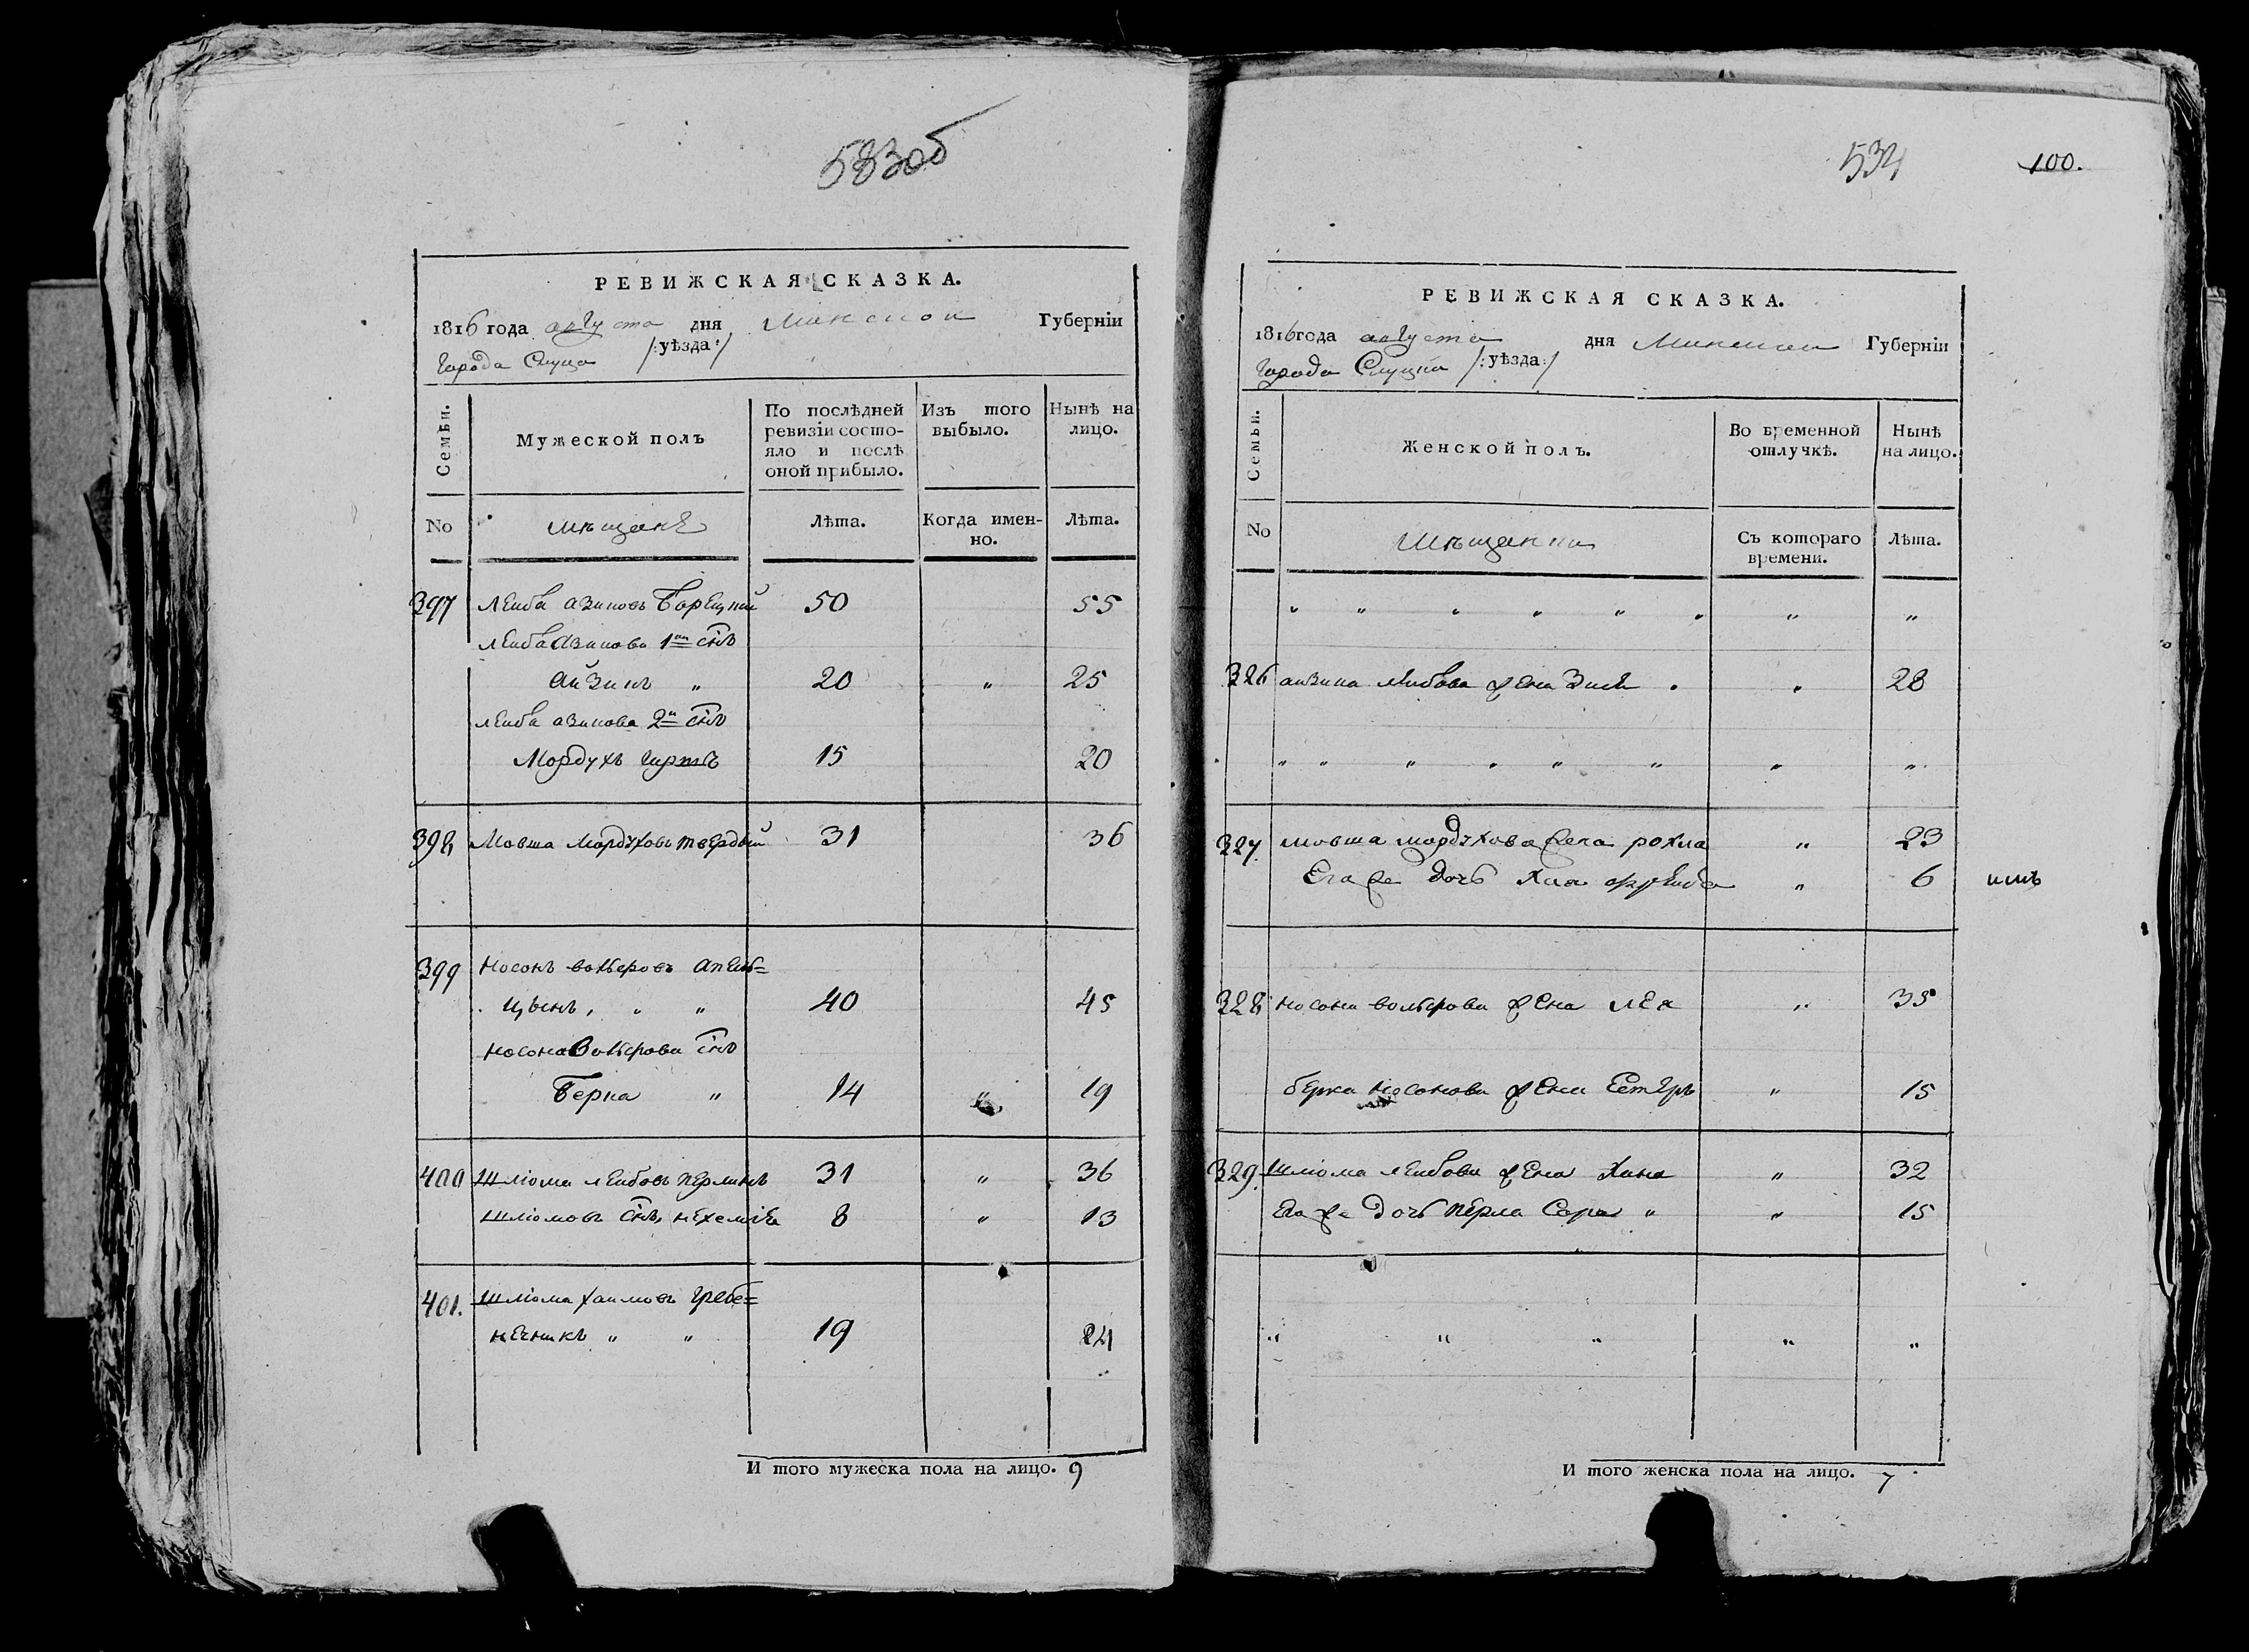 583об
РЕВИЖСКАЯ СКАЗКА.
1816 года августа дня Минской Губерніи
города Слуцка /:уѣзда:/
Семьи.
Мужеской полъ
По послѣдней ревизіи состояло и послѣ оной прибыло.
Изъ того выбыло.
Нынѣ на лицо.
No
мѣщанѣ
Лѣта.
Когда именно.
Лѣта.
397 Леиба азиковъ Борецкий 50 55
леиба Азикова 1й снъ
айзикъ " 20 " 25
леиба азикова 2й снъ
Мордухъ гиршъ 15 20
398 Мовша мордуховъ твердый 31 36
399 Носонъ вольфовъ апель=
цынъ, " " 40 45
носона Вольфова снъ
Берка " 14 " 19
400 Шліома леибовъ перликъ 31 " 36
шліомовъ снъ нехеміе 8 " 13
401. Шліома хаимовъ гребе=
нечникъ " " 19 24
И того мужеска пола на лицо. 9
534
100.
РЕВИЖСКАЯ СКАЗКА.
1816 года августа дня Минской Губерніи
города Слуцка /:уѣзда:/
Семьи.
Женской полъ.
Во временной отлучкѣ.
Нынѣ на лицо.
No
Мѣщанки
Съ котораго времени.
Лѣта.
" " " " " " " "
326 аизика леибова жена Зися " " 28
" " " " " " " "
327. мовша мордухова жена рохла " 23
Его же дочь Хая фреида " 6
328 носона вольфова жена лея " 35
берка носонова жена Естеръ " 15
329. Шліома леибова жена Хана " 32
Его же дочь перла Сора " " 15
" " " " "
И того женска пола на лицо. 7